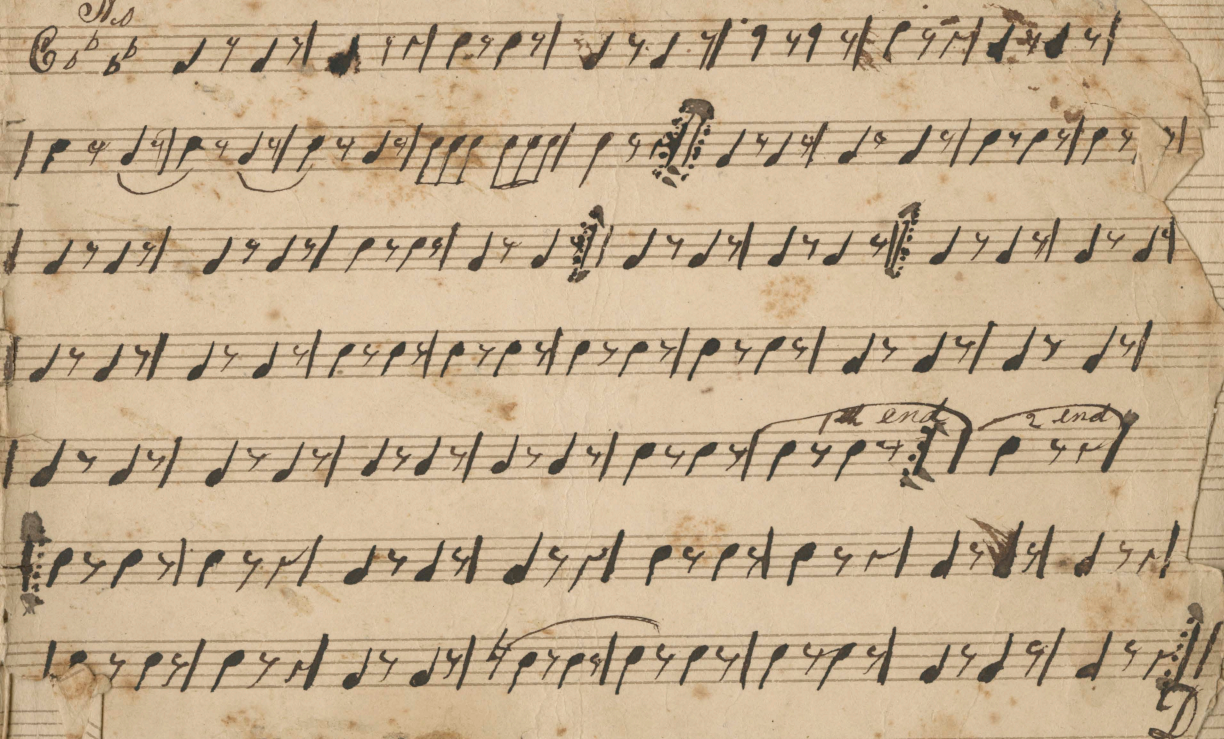 1th end 2 end
D